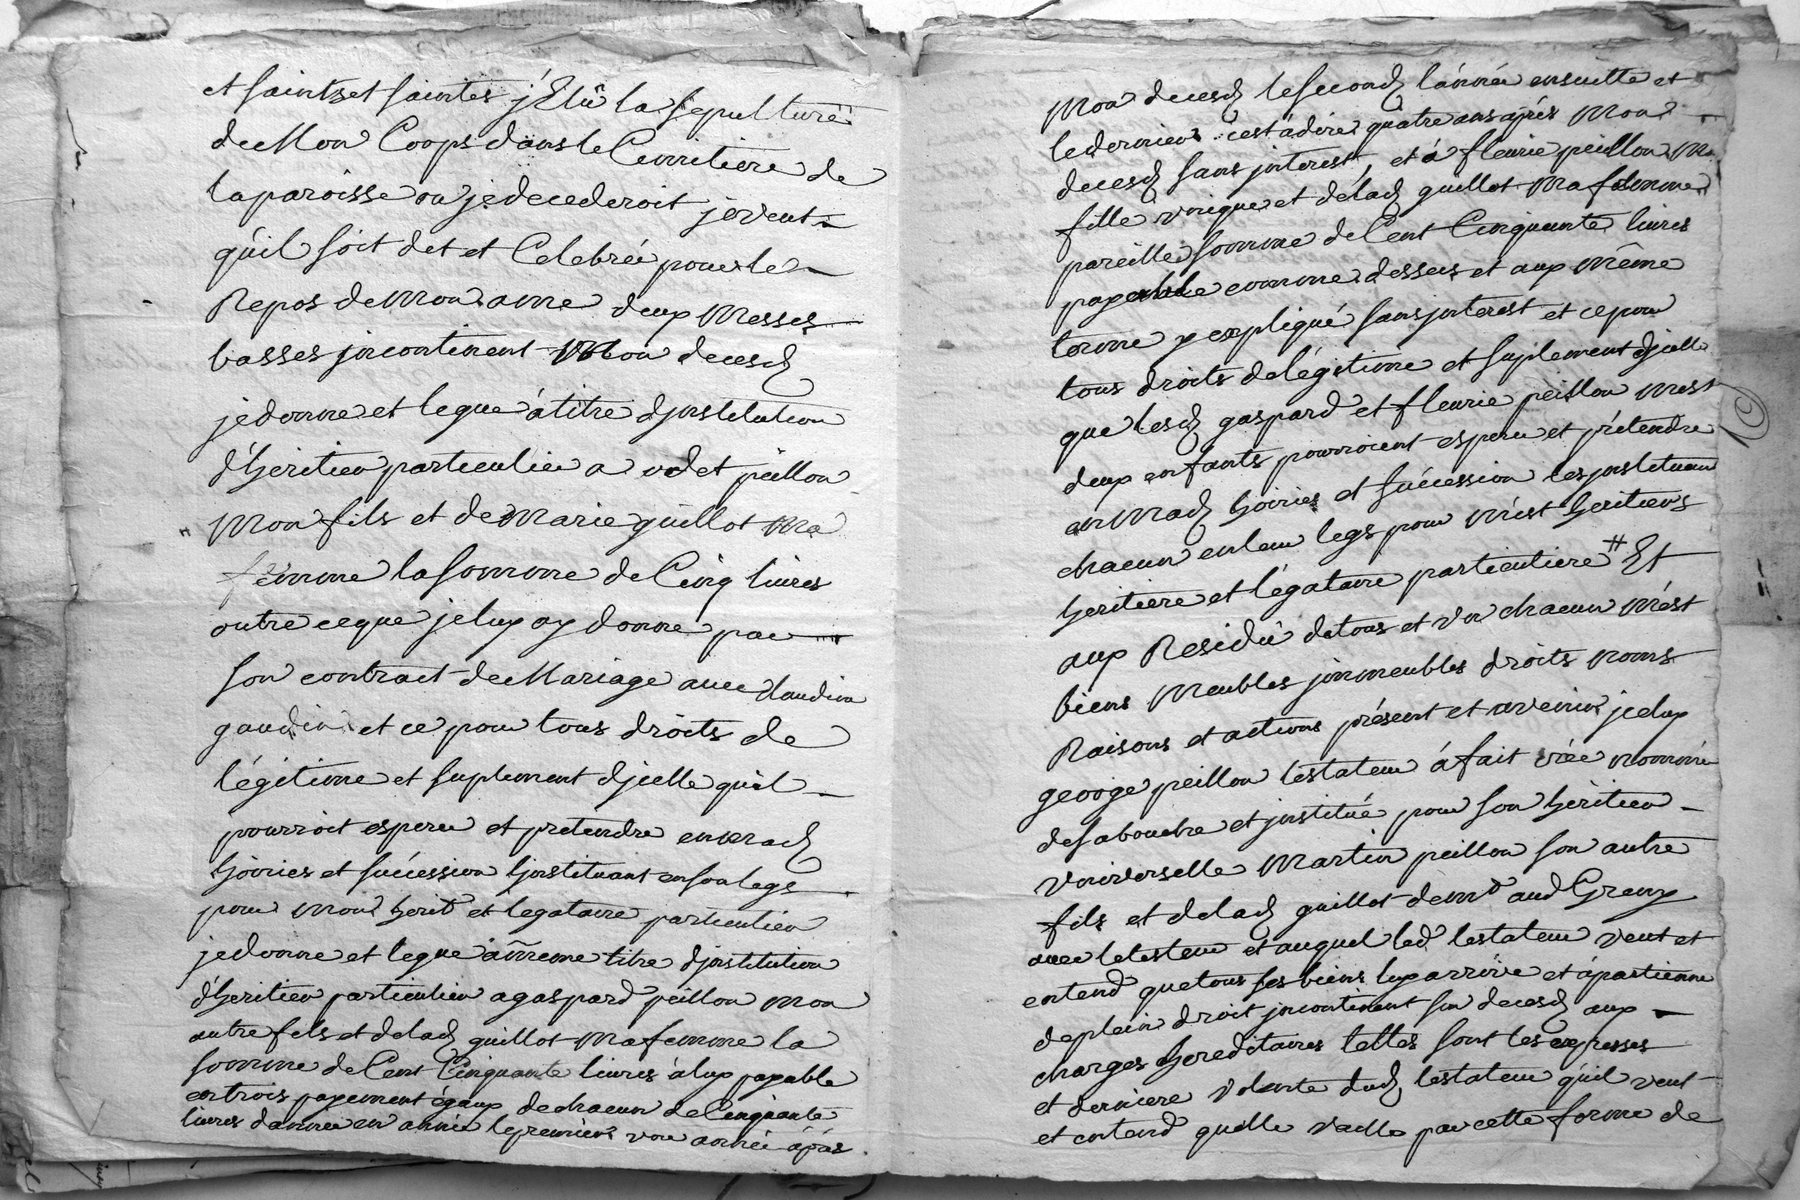 et saints et saintes j'Élû la sepulture
de Mon Coops dans le Cimitiere de
la paroisse ou je decederoit je veut
qu'il soit det et Celebrée pour le
Repos de Mon ame deux Messes
basses jncontinent Mon decesd
je donne et legue á titre d'jnstitution
d'heritier particulier a odet peillon
Mon fils et de Marie guillot Ma
femme la somme de Cinq livres
outre ceque je luy ay donne par
son contract de Mariage avec Claudine
gaudin et ce pour tous droits de
légitime et suplement d'jcelle quil
pourroit esperer et pretendre en mad
hoiries et succession l'jnstituant en son legs
pour Mon herit et legataire particulier
je donne et legue á même titre d'jnstitution
d'heritier particulier a gaspard peillon Mon
autre fils et de lad guillot Ma femme la
somme de Cent Cinquante livres á luy payable
en trois payement egaux de chacun de Cinquante
livres d'année en année le premier une année áprés
Mon decesd le second l'année ensuitte et
le dernier c'est ádire quatre ans áprés Mon
decesd sans jnterest, et á fleurie peillon Ma
fille unique et de lad guillot Ma femme
pareille somme de Cent Cinquante livres
payable comme dessus et aux même
terme y expliqué sans jnterest et ce pour
tous droits de légitime et suplement d'jcelle
que lesd gaspard et fleurie peillon mest
deux enfants pourroient esperer et prétendre
en mad hoiries et succession les jnstituant
chacun en leur legs pour mést heritiers
heritiere et légataire particuliere # Et
aux Residû de tous et un chacun mést
biens meubles jmmeubles droits noms
Raisons et actions présent et avenir jceluy
george peillon testateur á fait crée nommé
de sa bouche et jnstitué pour son heritier
universelle Martin peillon son autre
fils et de lad guillot dem.t aud Greux
avec le testeur et auquel led testateur veut et
entend que tous ses biens luy arrive et ápartienne
de plein droit jncontinent son decesd aux
charges hereditaires telles sont les expresses
et derniere volonte dud testateur quil veut
et entend quelle vaille par cette forme de